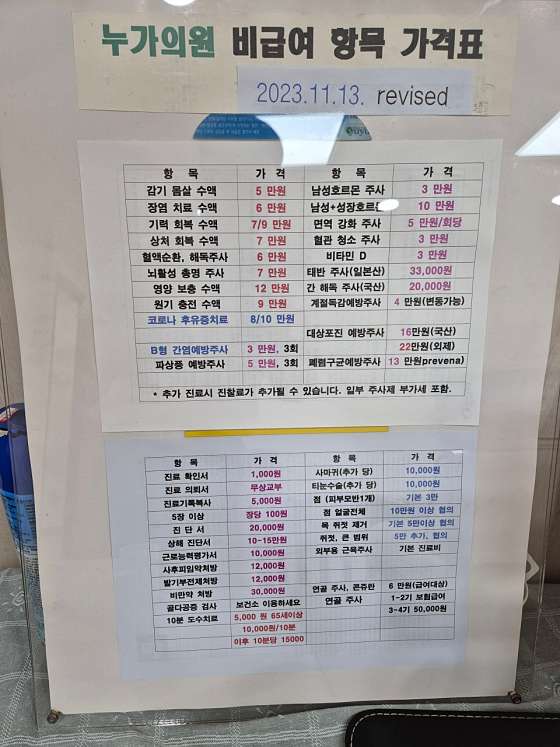 누가의원 비급여 항목 가격표
2023.11.13. revised
항 목 가 격 항 목 가 격
감기 몸살 수액 5 만원 남성호르몬 주사 3 만원
장염 치료 수액 6 만원 남성+성장호르몬 10 만원
기력 회복 수액 7/9 만원 면역 강화 주사 5 만원/회당
상처 회복 수액 7 만원 혈관 청소 주사 3 만원
혈액순환, 해독주사 6 만원 비타민 D 3 만원
뇌활성 총명 주사 7 만원 태반 주사(일본산) 33,000원
영양 보충 수액 12 만원 간 해독 주사(국산) 20,000원
원기 충전 수액 9 만원 계절독감예방주사 4 만원(변동가능)
코로나 후유증치료 8/10 만원
대상포진 예방주사 16만원(국산)
B형 간염예방주사 3 만원, 3회 22만원(외제)
파상풍 예방주사 5 만원, 3회 폐렴구균예방주사 13 만원prevena)
* 추가 진료시 진찰료가 추가될 수 있습니다. 일부 주사제 부가세 포함.
항 목 가 격 항 목 가 격
진료 확인서 1,000원 사마귀(추가 당) 10,000원
진료 의뢰서 무상교부 티눈수술(추가 당) 10,000원
진료기록복사 5,000원 점 (피부모반1개) 기본 3만
5장 이상 장당 100원 점 얼굴전체 10만원 이상 협의
진 단 서 20,000원 목 쥐젖 제거 기본 5만이상 협의
상해 진단서 10-15만원 쥐젖, 큰 범위 5만 추가, 협의
근로능력평가서 10,000원 외부용 근육주사 기본 진료비
사후피임약처방 12,000원
발기부전제처방 12,000원
비만약 처방 30,000원 연골 주사, 콘쥬란 6 만원(급여대상)
골다공증 검사 보건소 이용하세요 연골 주사 1-2기 보험급여
10분 도수치료 5,000 원 65세이상 3-4기 50,000원
10,000원/10분
이후 10분당 15000